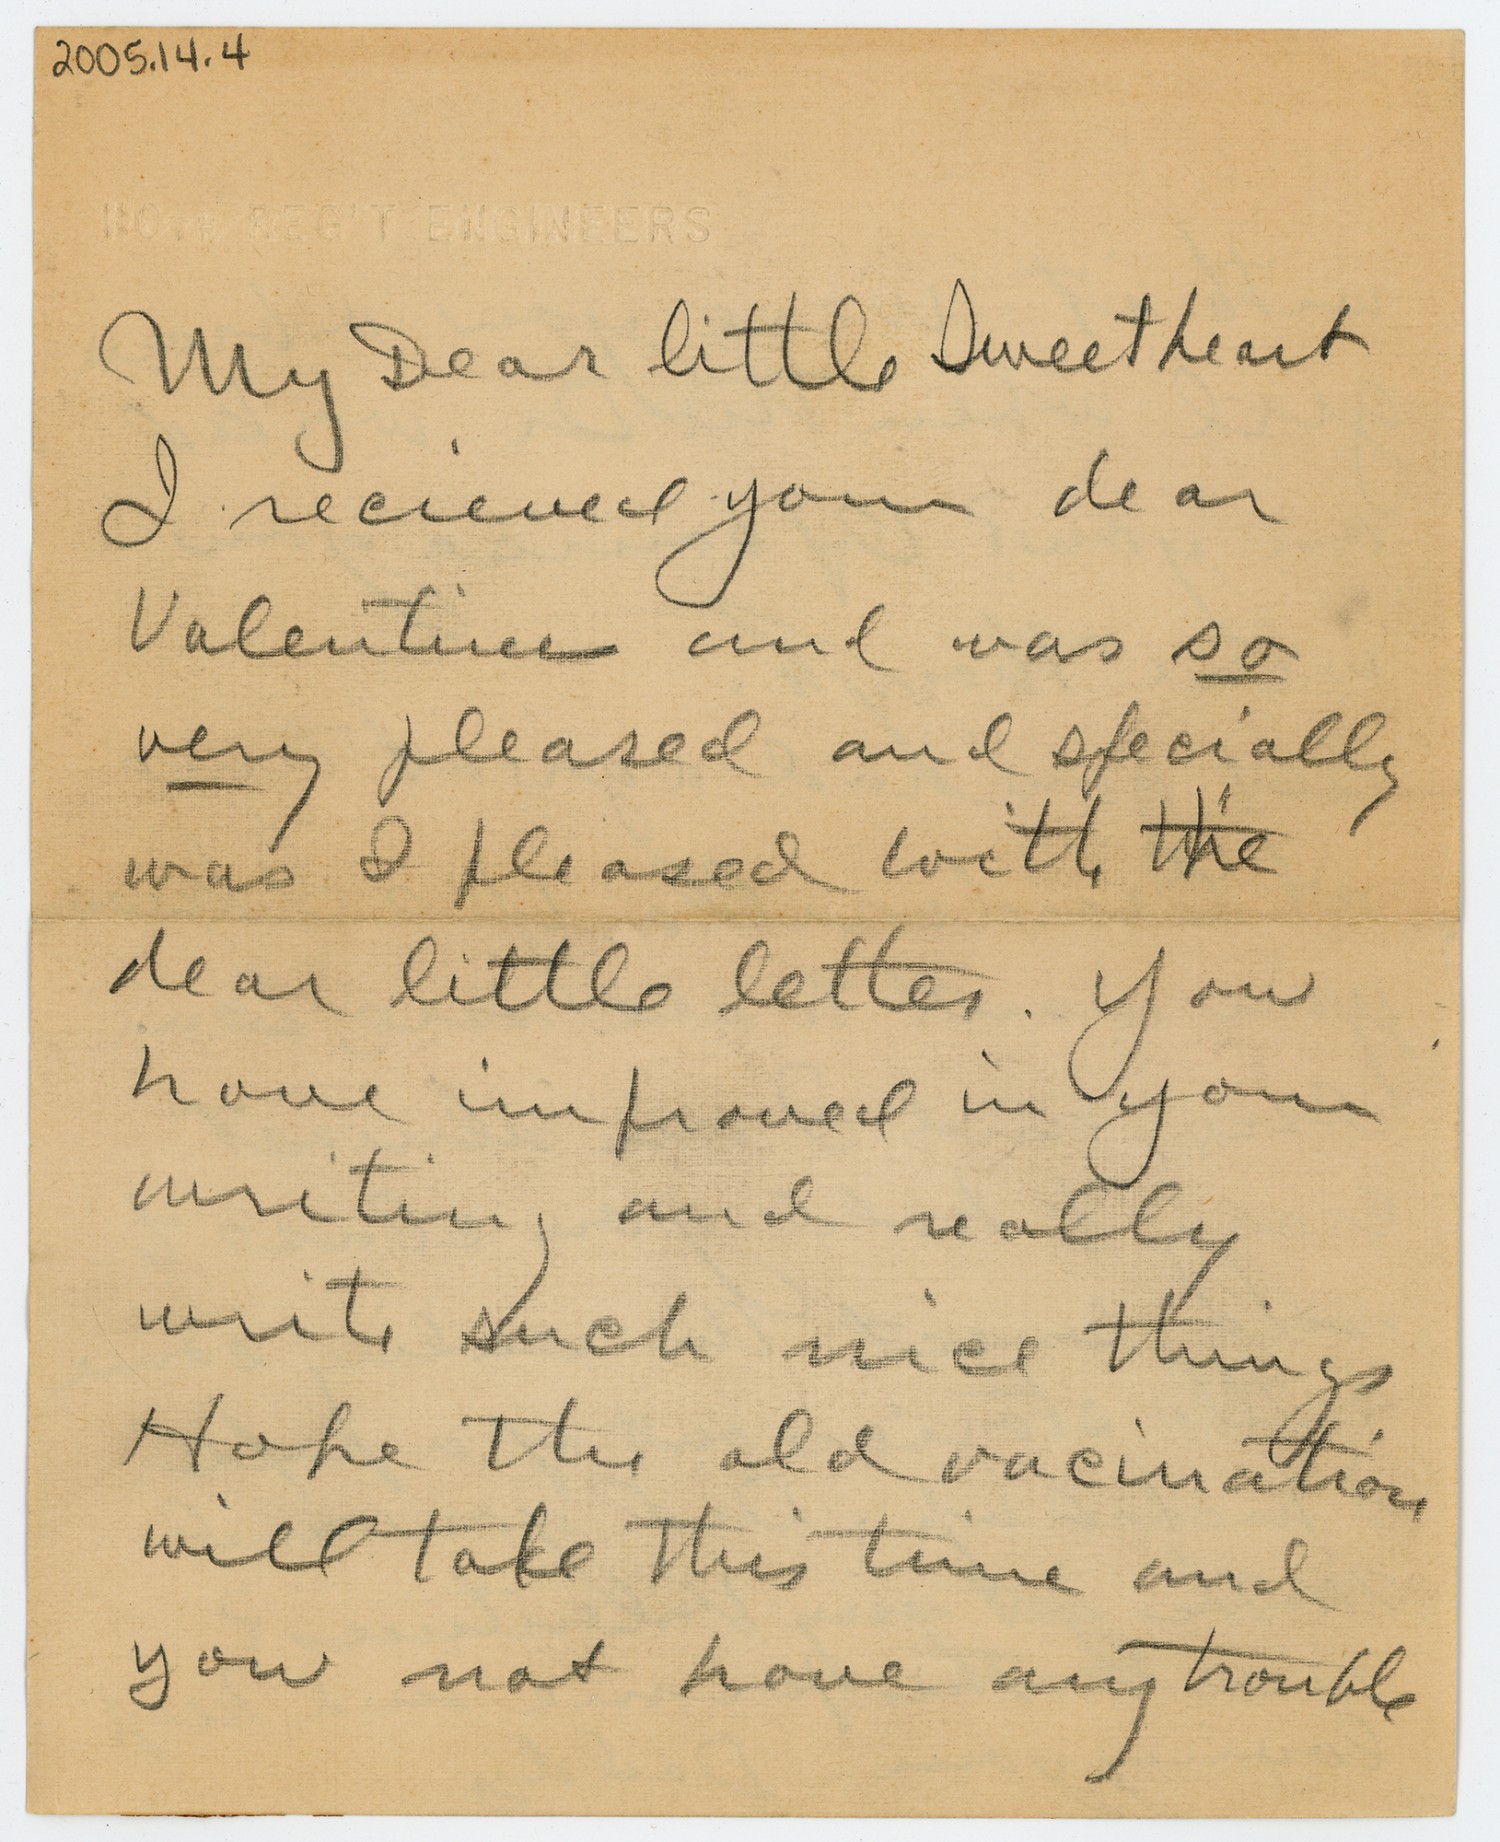 2005.14.4
REG'T ENGINEERS
My Dear little Sweetheart
I recieved your dear
Valentine and was so
very pleased and specially
was I pleased with the
dear little letter. You
have improved in your
writing and really
write such nice things
Hope the old vacination
will take this time and
you not have any trouble